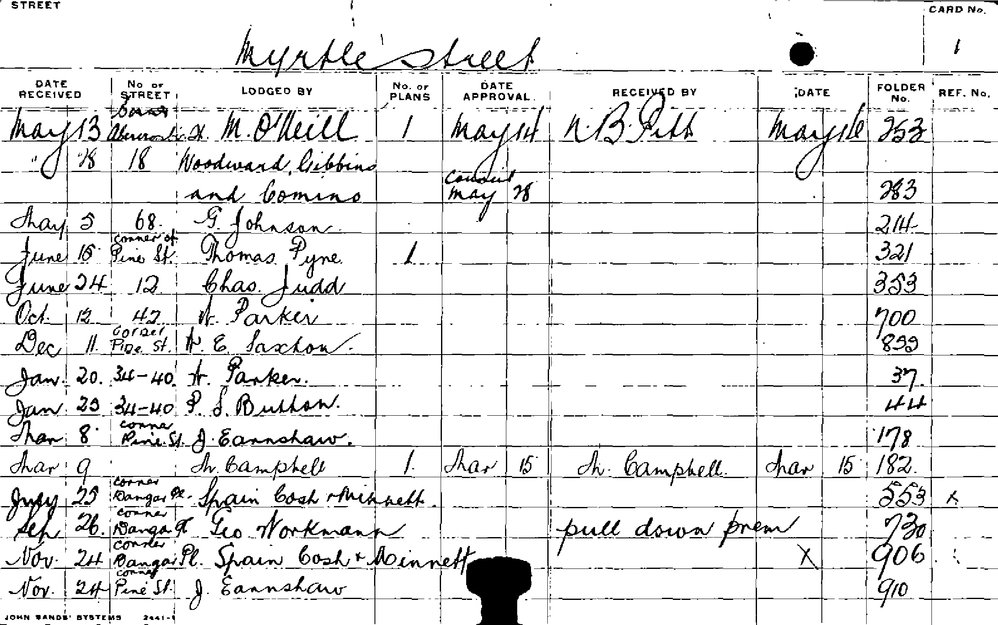 STREET
CARD No.
Myrtle Street
1
DATE RECEIVED No. OF STREET LODGED BY No. OF PLANS DATE APPROVAL. RECEIVED BY DATE FOLDER No. REF. No.
May 13 Corner Abercrombie St. M. O'Neill 1 May 14 N B Pitt May 16 253
" " 18 18 Woodward, Gibbins
and Comino Council May 28 283
May 5 68. G. Johnson. 214
June 15 corner of Pine St. Thomas Pyne 1 321
June 24 12 Chas. Judd 353
Oct. 12 42 A. Parker 700
Dec 11. corner Pine St. A. E. Saxton. 899
Jan. 20. 34-40. A. Parker. 37.
Jan 25 34-40. P. S. Button. 44
Mar 8 corner Pine St. J. Earnshaw. 178
Mar 9 M. Campbell 1. Mar 15 M. Campbell. Mar 15 182.
July 25 corner Dangar Pl. Spain Cosh & Minnett. 553 x
Sep 26. corner Dangar Pl Geo Workmann pull down prem 730
Nov. 24 corner Dangar Pl. Spain Cosh & Minnett X 906
Nov. 24 corner Pine St. J. Earnshaw 910
JOHN SANDS' SYSTEMS 2441-1